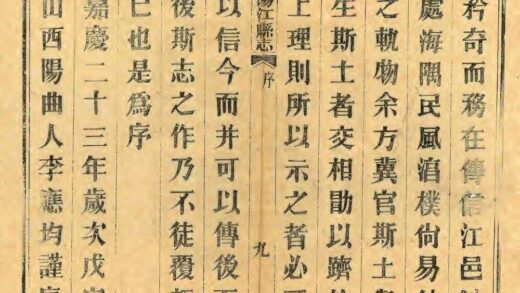 矜奇而移在傳信江邑
處海隅民風湻樸尙易
之軌物余方冀官斯土
生斯土者交相勖以躋
上理則所以示之者必
陽江縣志
序
九
以信今而并可以傳後
後斯志之作乃不徒覆
已也是爲序
嘉慶二十三年歲次戊
山西陽曲人李澐均謹